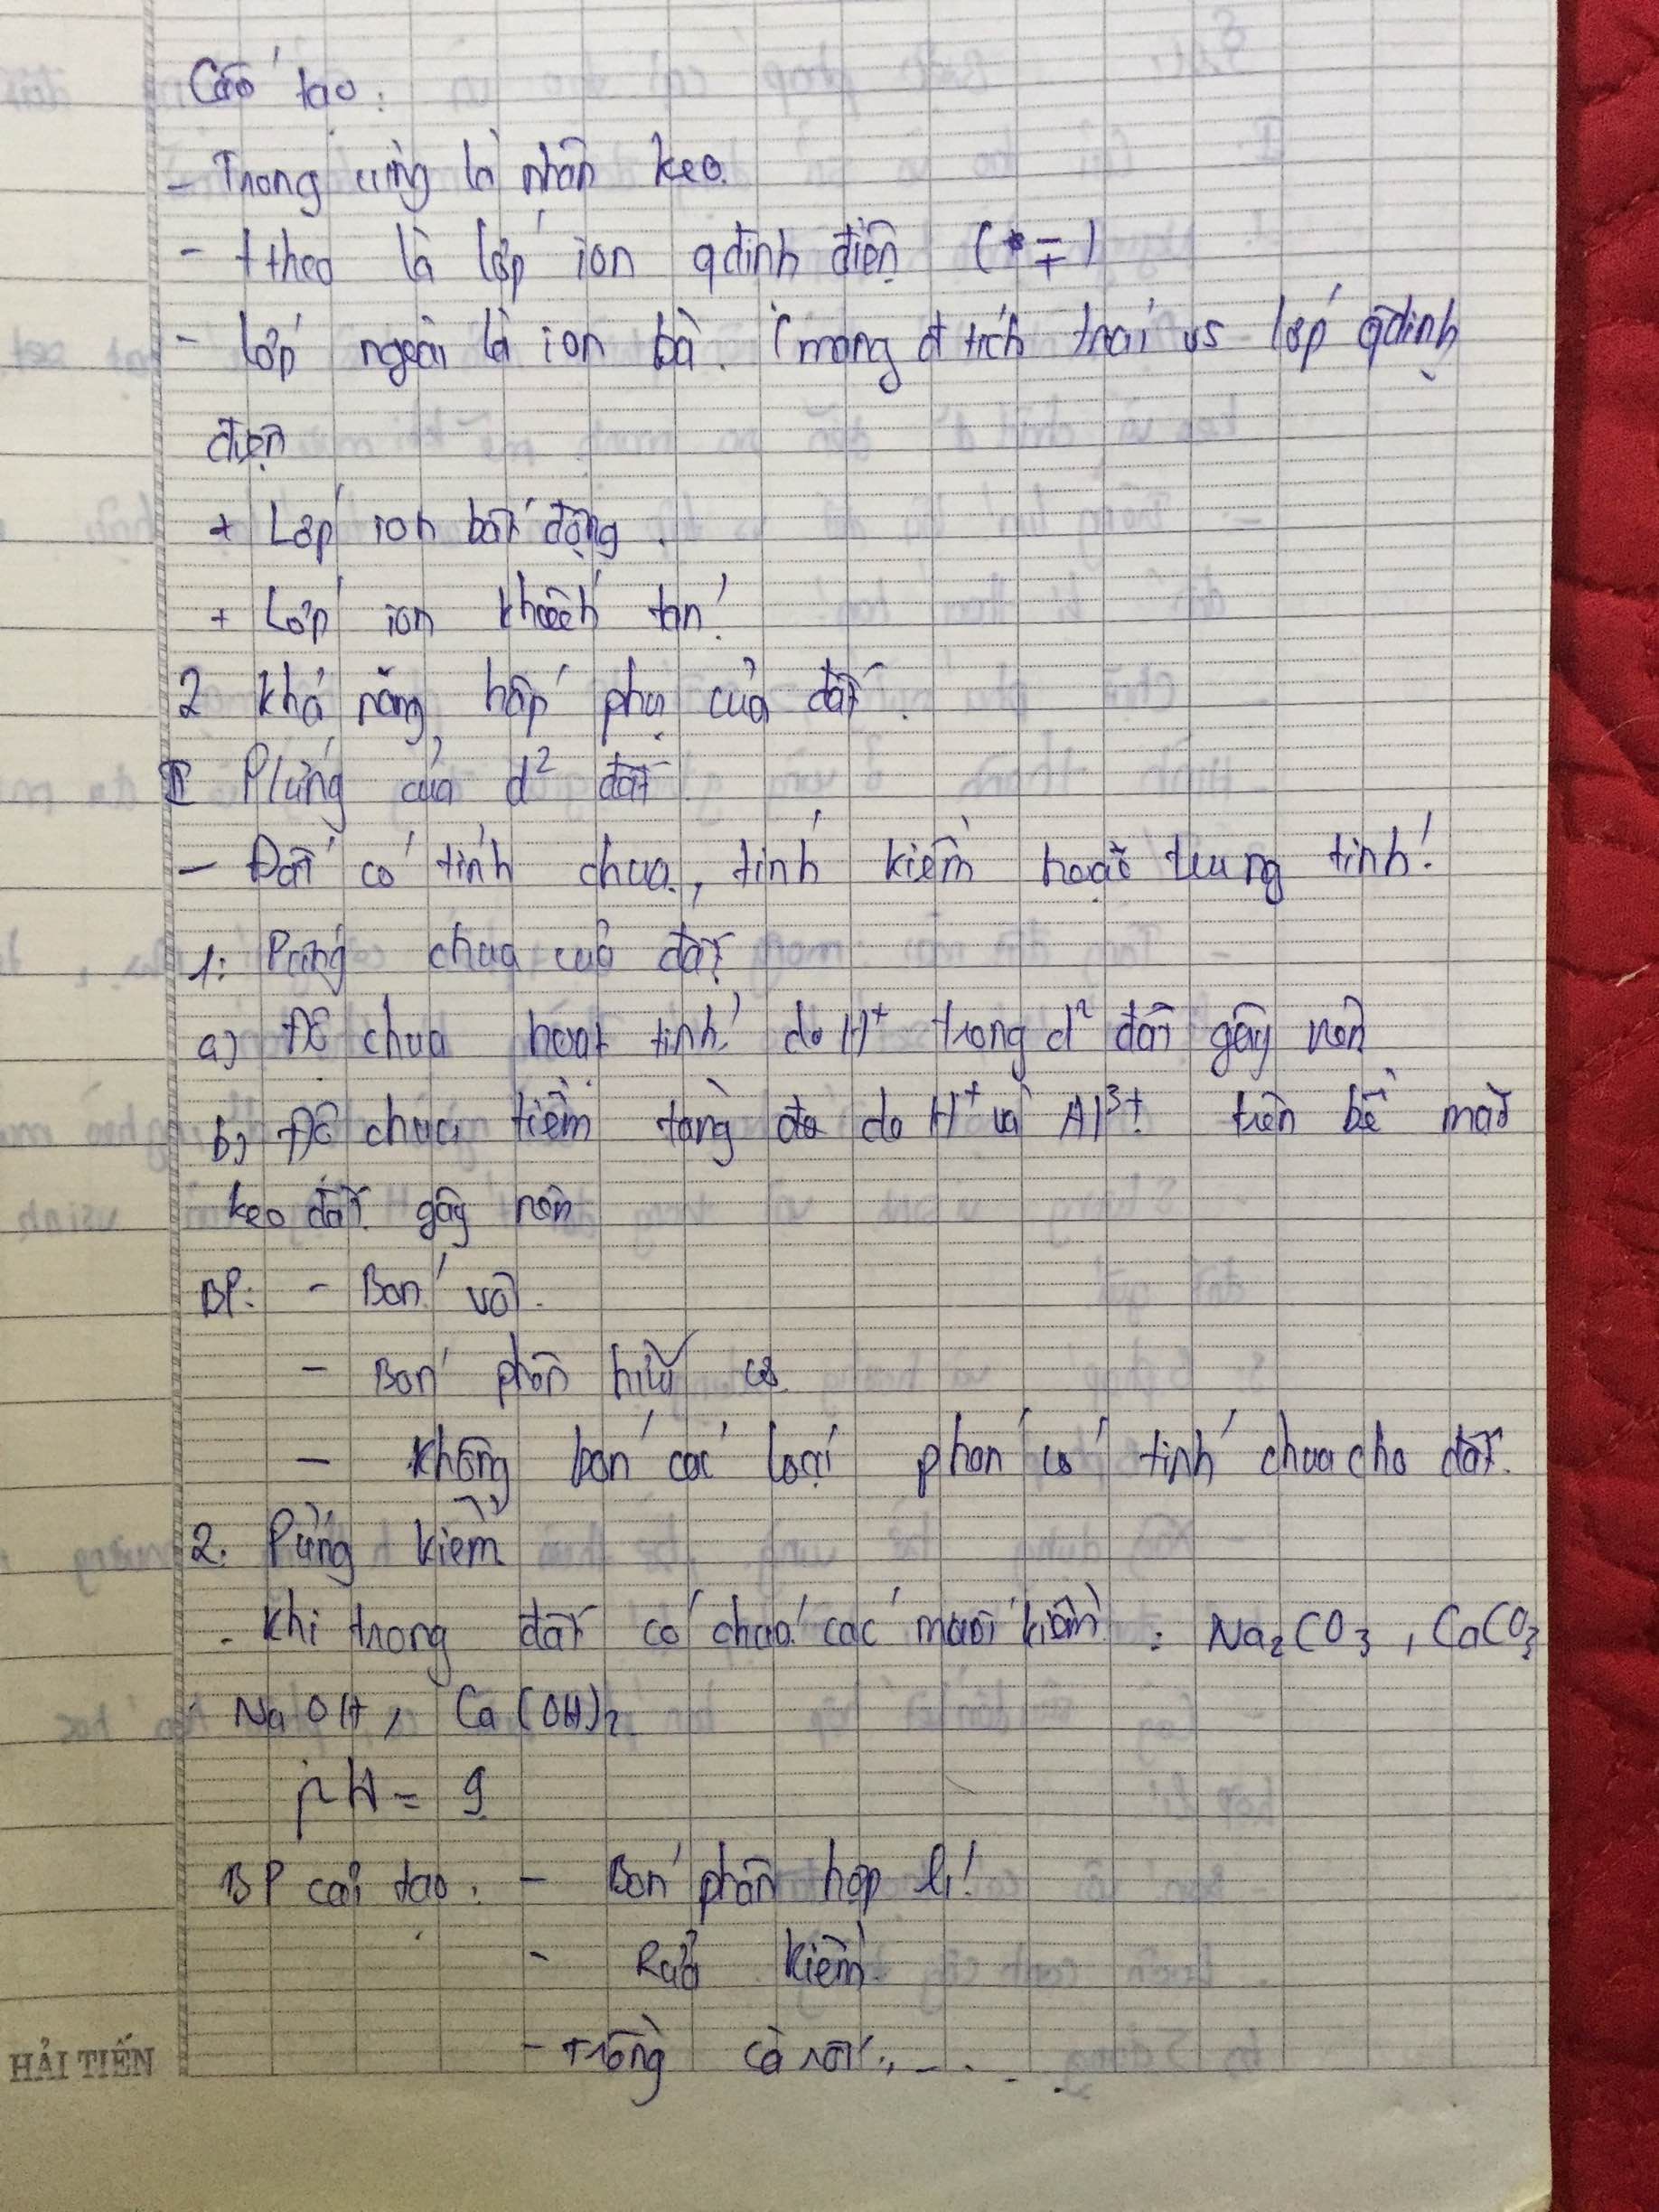 Cấu tạo:
- Trong cùng là nhân keo.
- t theo là lớp ion qđịnh điện (∓)
- Lớp ngoài là ion bù. (mang đ tích trái vs lớp qđịnh
điện
+ Lớp ion bất động.
+ Lớp ion khuếch tán.
2 Khả năng hấp phụ của đất.
II P/ứng của d² đất
- Đất có tính chua, tính kiềm hoặc trung tính.
1: Pứng chua của đất
a) Độ chua hoạt tính: do H⁺ trong d² đất gây nên
b) Độ chua tiềm tàng do H⁺ và Al³⁺ trên bề mặt
keo đất gây nên
BP: - Bón vôi.
- Bón phân hữu cơ
- Không bón các loại phân có tính chua cho đất.
2. Pứng kiềm
- Khi trong đất có chứa các muối kiềm: Na₂CO₃, CaCO₃
NaOH, Ca(OH)₂
pH = 9
BP cải tạo: - Bón phân hợp lí.
- Rửa kiềm.
- Trồng cà rốt,...
HẢI TIẾN